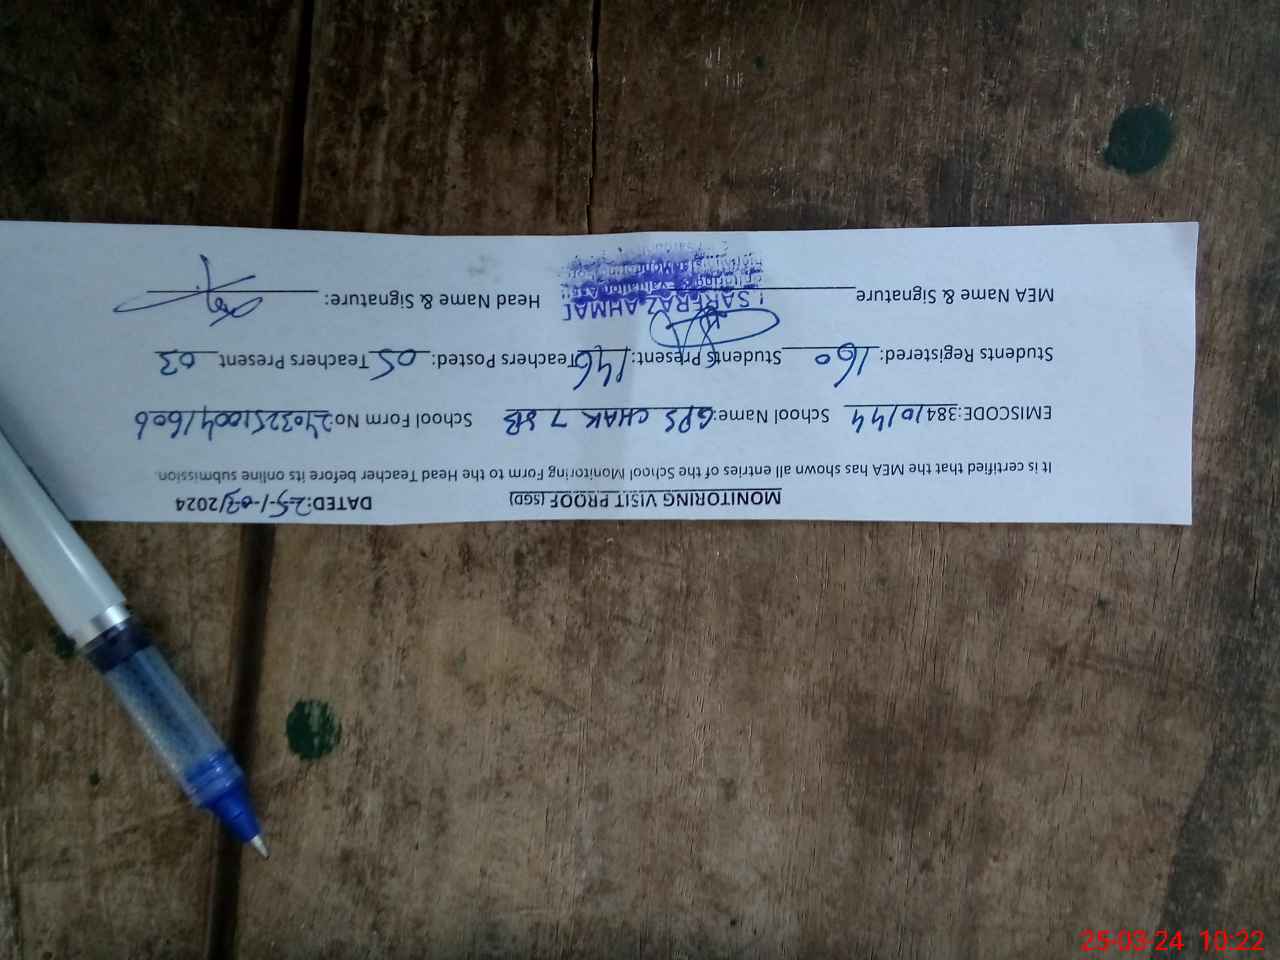 MONITORING VISIT PROOF (SGD) DATED:25/03/2024
It is certified that the MEA has shown all entries of the School Monitoring Form to the Head Teacher before its online submission.
EMISCODE:38410144 School Name: GPS CHAK 7 SB School Form No:24032510041606
Students Registered: 160 Students Present: 146 Teachers Posted: 05 Teachers Present 03
MEA Name & Signature SARFRAZ AHMAD Head Name & Signature:
25-03-24 10:22